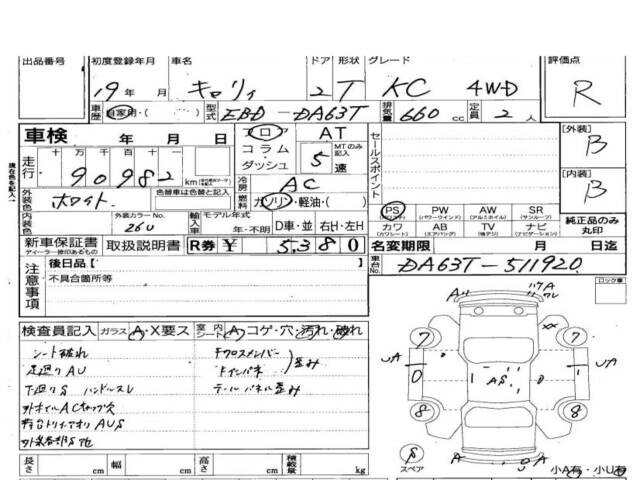 出品番号 初度登録年月 車名 ドア 形状 グレード 評価点
19年 月 キャリィ 2 T KC 4WD R
車歴 自家用・( ) 型式 EBD-DA63T 排気量 660 cc 定員 2 人
車検 年 月 日 フロア AT
コラム MTのみ記入
ダッシュ 5速
走行 十万千百十一
90982 km
冷房 AC
外装色 ホワイト 色替車は色替と記入
燃料 ガソリン・軽油・( )
内装色 外装カラーNo. 26U 輸入車 モデル年式 年・不明 D車・並 右H・左H
セールスポイント
PS PW AW SR
(パワーウインド) (アルミホイル) (サンルーフ)
カワ AB TV ナビ
(カワシート) (エアバッグ) (ナビゲーション)
[外装] B
[内装] B
純正品のみ丸印
新車保証書 取扱説明書 R券 ¥ 5,380 名変期限 月 日迄
ディーラー捺印あるもの
注意事項 後日品[
不具合箇所等
車台No. DA63T-511920
ロック車
検査員記入 ガラス A・X要ス 室内シート A コゲ・穴・汚れ・破れ
シート破れ Fクロスメンバー
足廻りAU Fインパネ 歪み
下廻りS ハンドルスレ テールパネル歪み
外ホイルACキャップ欠
荷台トリィアオリAUS
外装各部S他
A ハクA ワレ
XX
7 7
UA 0 1 AS 1 UA
8 8
S スペア A A
長さ cm 幅 cm 高さ cm 積載量 kg
小A有・小U有